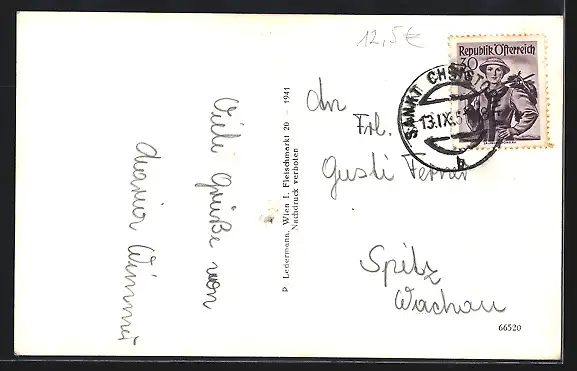 12,5€
Republik Österreich
30
SANKT CHRISTO
13.IX.5
b
An
Frl.
Gusti Ferner
Spitz
Wachau
66520
P. Ledermann, Wien I, Fleischmarkt 20 - 1941
Nachdruck verboten
Viele Grüße von
Maria Wimmer